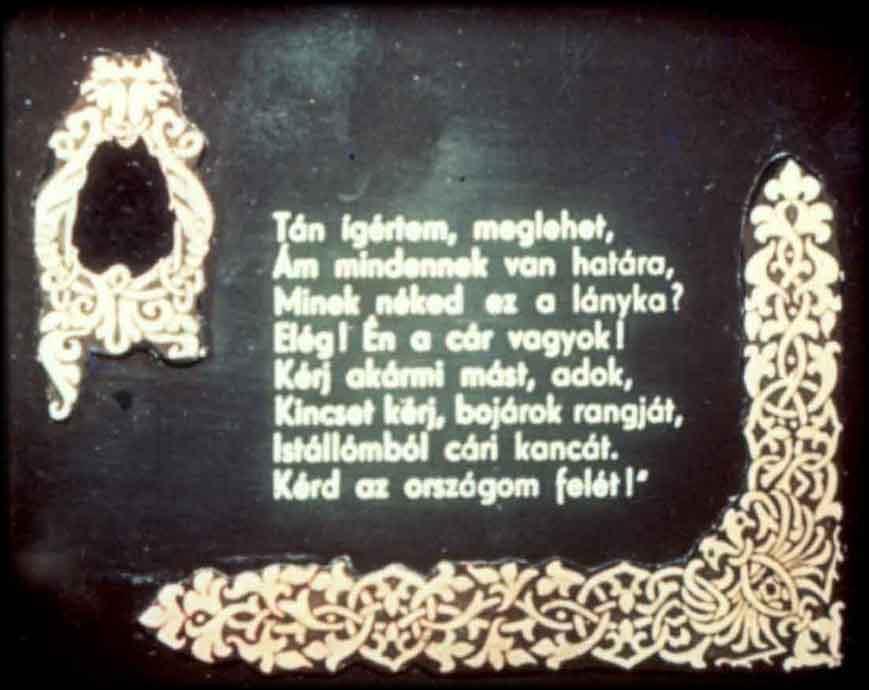 Tán ígértem, meglehet,
Ám mindennek van határa,
Minek néked ez a lányka?
Elég! Én a cár vagyok!
Kérj akármi mást, adok,
Kincset kérj, bojárok rangját,
Istállómból cári kancát.
Kérd az országom felét!"